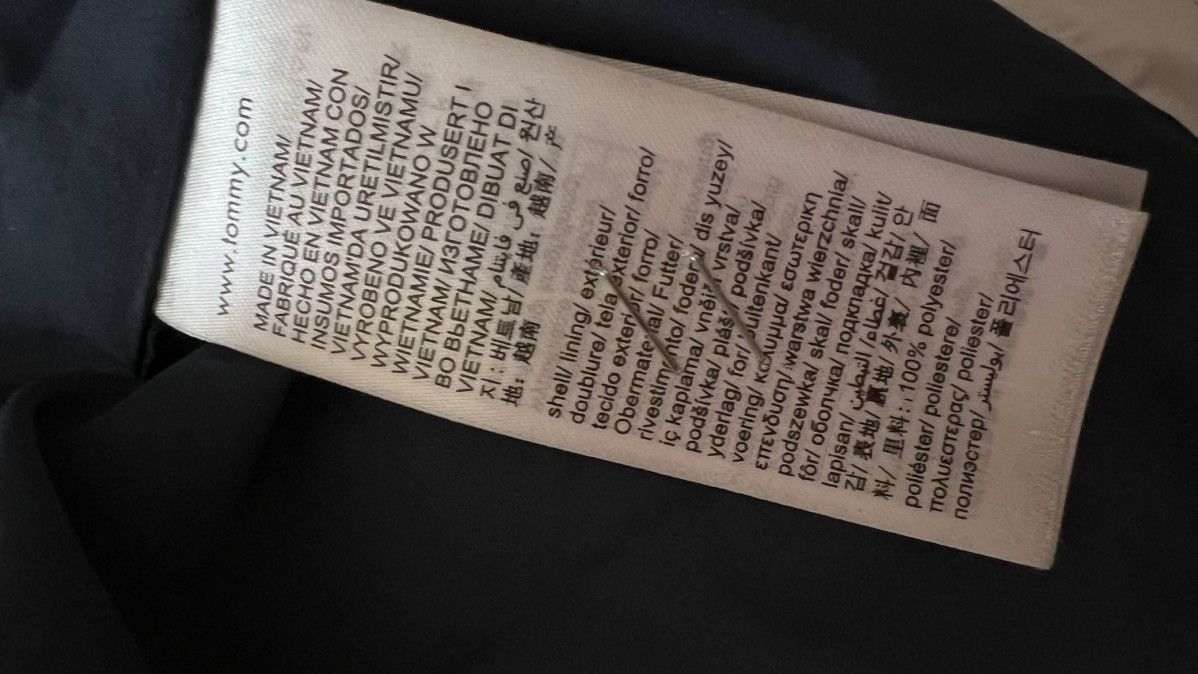 www.tommy.com
MADE IN VIETNAM/
FABRIQUÉ AU VIETNAM/
HECHO EN VIETNAM CON
INSUMOS IMPORTADOS/
VIETNAM'DA URETILMISTIR/
VYROBENO VE VIETNAMU/
WYPRODUKOWANO W
WIETNAMIE/ PRODUSERT I
VIETNAM/ ИЗГОТОВЛЕНО
ВО ВЬЕТНАМЕ/ DIBUAT DI
VIETNAM/ صنع في فيتنام/ 원산
지 : 베트남/ 產地: 越南/ 产
地: 越南
shell/ lining/ extérieur/
doublure/ tela exterior/ forro/
tecido exterior/ forro/
Obermaterial/ Futter/
rivestimento/ fodera/ dis yuzey/
iç kaplama/ vnější vrstva/
podšívka/ plášť/ podšívka/
yderlag/ for/ buitenkant/
voering/ κάλυμμα/ εσωτερικη
επενδυση/ warstwa wierzchnia/
podszewka/ skal/ foder/ skall/
fôr/ оболочка/ подкладка/ kulit/
lapisan/ غطاء/ التبطين/ 겉감/ 안
감/ 表地/ 裏地/ 外裏/ 內裡/ 面
料/ 里料: 100% polyester/
poliéster/ poliestere/
πολυεστερας/ poliester/
полиэстер/ بوليستر/ 폴리에스터